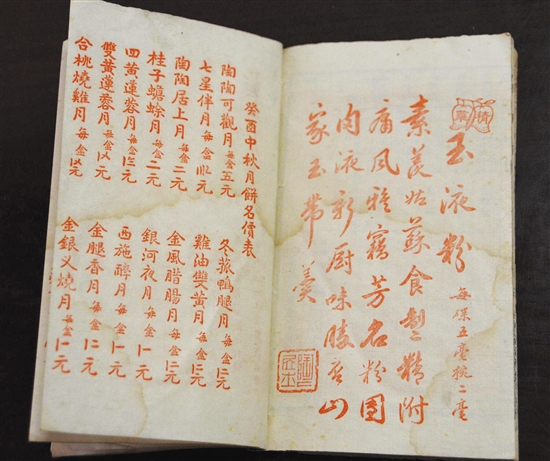 玉液粉
每 五毫 二毫
素羡姑蘇食製精附
庸風雅竊芳名粉團
肉液新厨味勝 山
家玉帶羹
癸酉中秋月餅名價表
陶陶可觀月 每盒五元
七星伴月 每盒 元
陶陶居上月 每盒二元
桂子蟾蜍月 每盒二元
四黄蓮蓉月 每盒 元
雙黄蓮蓉月 每盒 元
合桃燒雞月 每盒 元
冬菰鴨腿月 每盒 元
雞油雙黄月 每盒 元
金風腊腸月 每盒 元
銀河夜月 每盒 元
西施醉月 每盒 元
金腿香月 每盒 元
金銀叉燒月 每盒 元